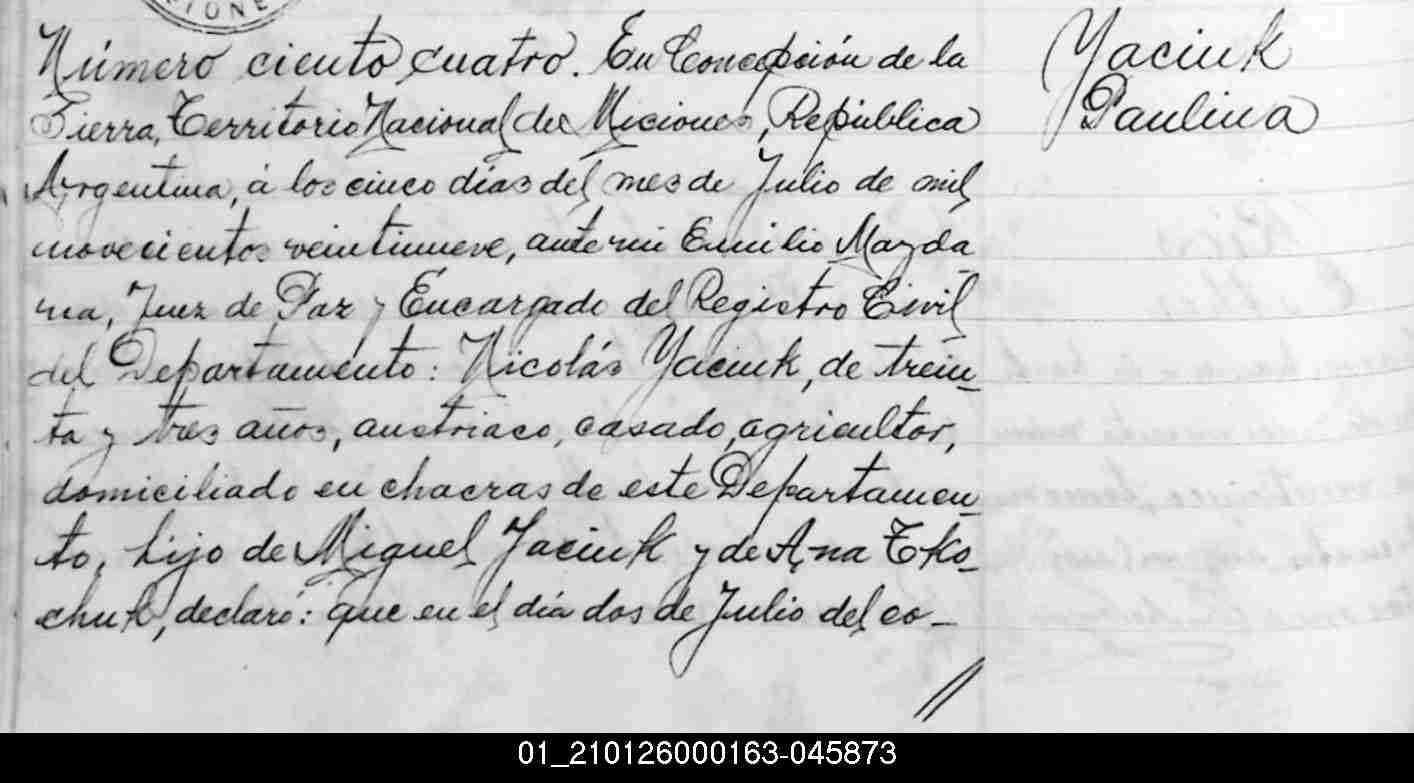 IONE
Número ciento cuatro. En Concepción de la
Sierra, Territorio Nacional de Miciones, República
Argentina, á los cinco días del mes de Julio de mil
novecientos veintinueve, ante mi Emilio Mayda
na, Juez de Paz y Encargado del Registro Civil
del Departamento: Nicolás Yaciuk, de trein-
ta y tres años, austriaco, casado, agricultor,
domiciliado en chacras de este Departamen-
to, hijo de Miguel Jaciuk y de Ana Tko-
chuk, declaró: que en el día dos de Julio del co-
//
Yaciuk
Paulina
01_210126000163-045873